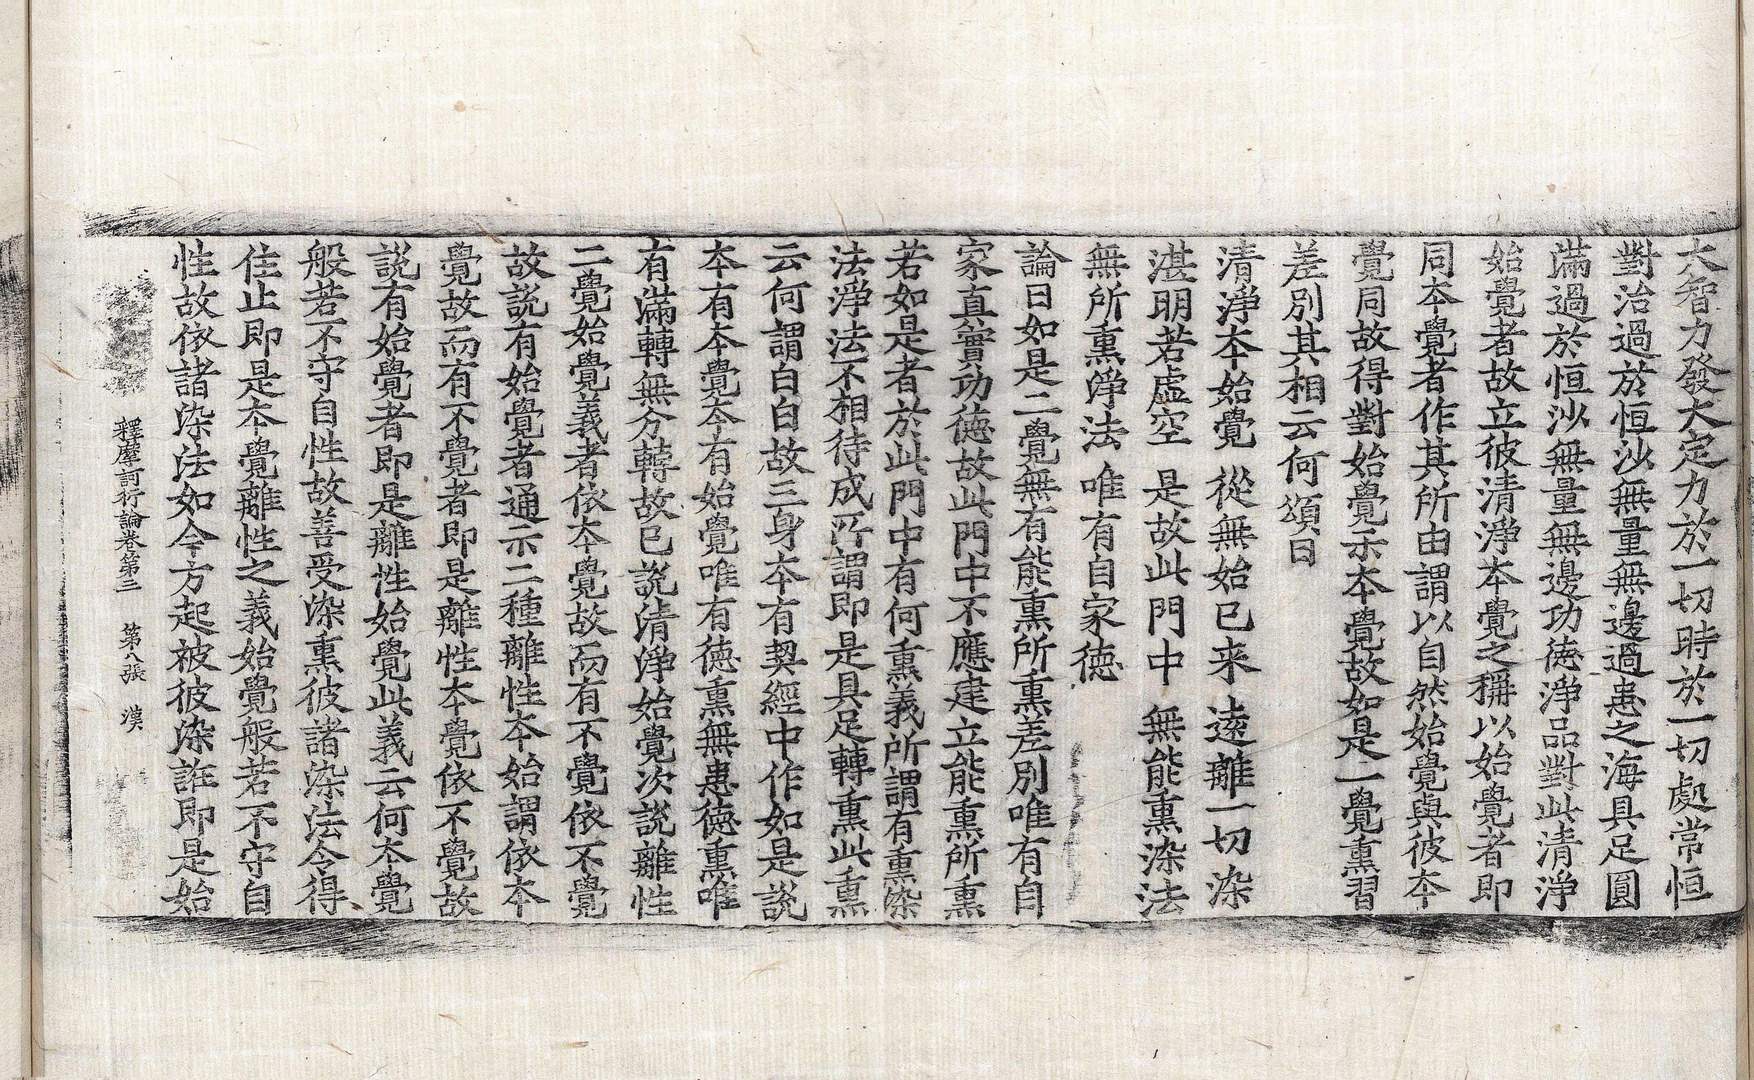 大智力發大定力於一切時於一切處常恒
對治過於恒沙無量無邊過患之海具足圓
滿過於恒沙無量無邊功德淨品對此清淨
始覺者故立彼清淨本覺之稱以始覺者即
同本覺者作其所由謂以自然始覺與彼本
覺同故得對始覺示本覺故如是二覺熏習
差別其相云何頌曰
清淨本始覺 從無始已来 遠離一切染
湛明若虛空 是故此門中 無能熏染法
無所熏淨法 唯有自家德
論曰如是二覺無有能熏所熏差別唯有自
家真實功德故此門中不應建立能熏所熏
若如是者於此門中有何熏義所謂有熏染
法淨法不相待成所謂即是具足轉熏此熏
云何謂白白故三身本有契經中作如是說
本有本覺今有始覺唯有德熏無患德熏唯
有滿轉無分轉故已說清淨始覺次說離性
二覺始覺義者依本覺故而有不覺依不覺
故說有始覺者通示二種離性本始謂依本
覺故而有不覺者即是離性本覺依不覺故
說有始覺者即是離性始覺此義云何本覺
般若不守自性故善受染熏彼諸染法令得
住止即是本覺離性之義始覺般若不守自
性故依諸染法如今方起被彼染誰即是始
釋摩訶衍論卷第三 第八張 漢